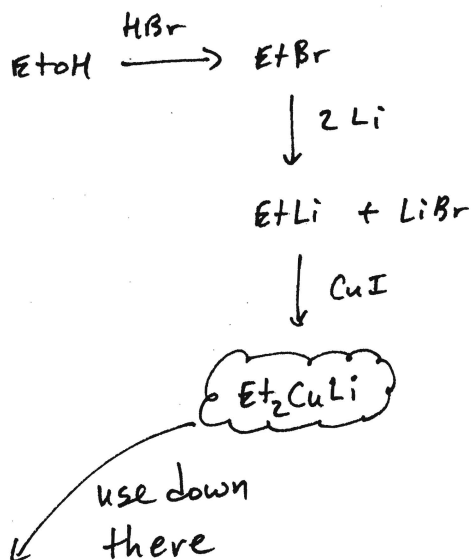 HBr
EtOH → EtBr
↓ 2 Li
EtLi + LiBr
↓ CuI
Et₂CuLi
use down
there